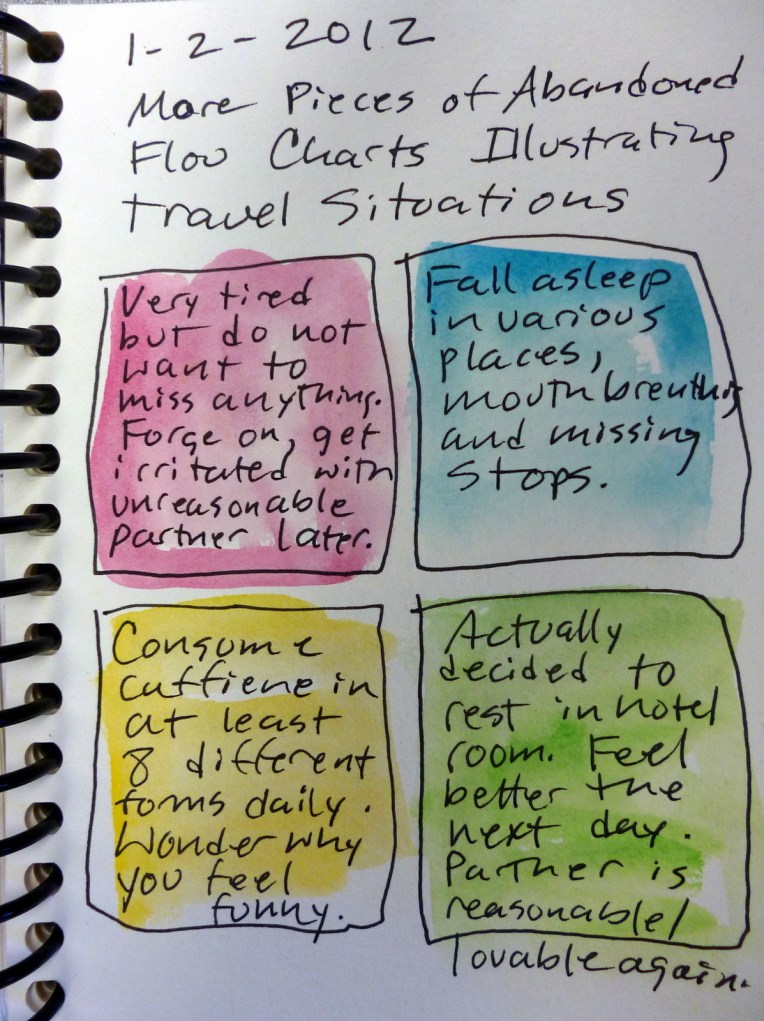 1-2-2012
More Pieces of Abandoned
Flow Charts Illustrating
Travel Situations
Very tired
but do not
want to
miss anything.
Forge on, get
irritated with
unreasonable
partner later.
Fall asleep
in various
places,
mouthbreathing
and missing
stops.
Consume
caffiene in
at least
8 different
forms daily.
Wonder why
you feel
funny.
Actually
decided to
rest in hotel
room. Feel
better the
next day.
Partner is
reasonable/
lovable again.